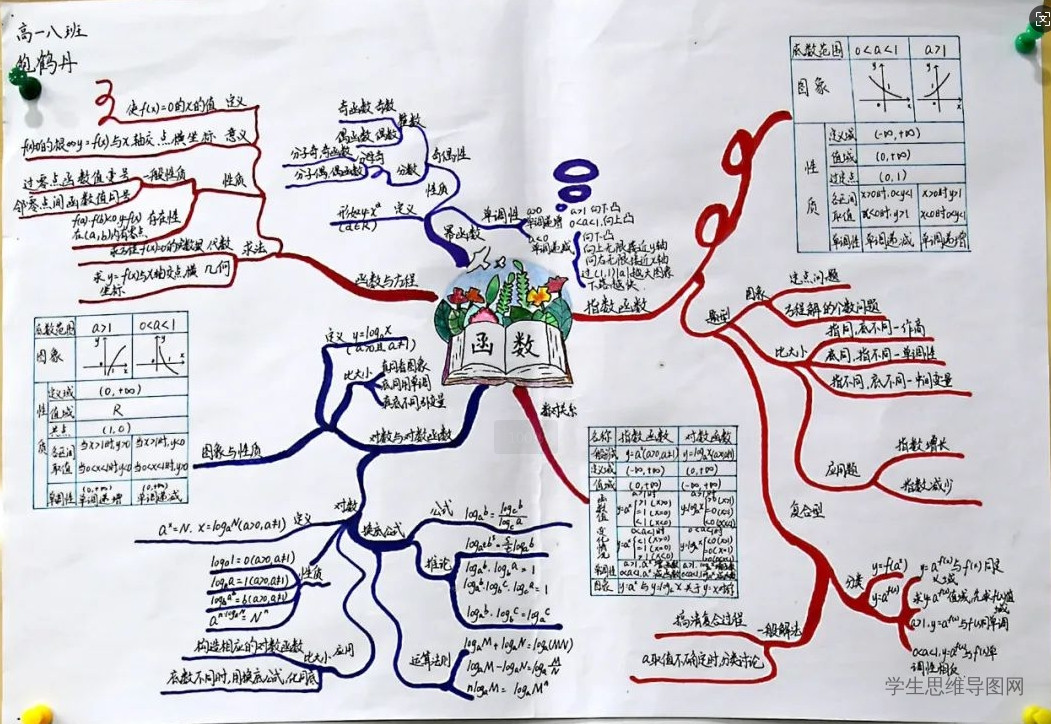 高一八班
鲍鹤丹
使f(x)=0的x的值 定义
f(x)=0的根⇔y=f(x)与x轴交点横坐标 意义
过零点函数值变号 一般性质
邻零点间函数值同号
性质
存在性
在(a,b)内有零点
代数 求法
求y=f(x)与x轴交点横坐标 几何
函数与方程
奇函数 奇数
偶函数 偶数
整数
分子奇,奇函数 分母奇
分子偶,偶函数
分数
奇偶性
性质
形如y=xᵃ
(a∈R)
定义
幂函数
单调性
a>0
单调递增
a>1 向下凸
0<a<1,向上凸
a<0
单调递减
向下凸
向上无限接近y轴
向右无限接近x轴
过(1,1)|a|越大图象
下跌越快
函数
指数函数
底数范围 0<a<1 a>1
图象
性质
定义域 (-∞,+∞)
值域 (0,+∞)
过定点 (0,1)
各区间取值 x>0时,0<y<1 x>0时,y>1
x<0时,y>1 x<0时0<y<1
单调性 单调递减 单调递增
题型
图象
定点问题
方程解的个数问题
比大小
指同,底不同—作商
底同,指不同—单调性
指不同,底不同—中间变量
应用题
指数增长
指数减少
复合型
分类
y=f(aˣ)
y=a^f(x)
y=a^f(x)与f(x)同定义域
求y=a^f(x)值域,先求f(x)值域
a>1,y=a^f(x)与f(x)同单调
0<a<1,y=a^f(x)与f(x)单调性相反
一般解法
搞清复合过程
a取值不确定时,分类讨论
底数范围 a>1 0<a<1
图象
性质
定义域 (0,+∞)
值域 R
定点 (1,0)
各区间取值 当x>1时,y>0 当x>1时,y<0
当0<x<1时,y<0 当0<x<1时,y>0
单调性 (0,+∞)单调递增 (0,+∞)单调递减
图象与性质
定义 y=logₐx
(a>0且a≠1)
比大小
真同看图象
底同用单调
真底不同引变量
对数与对数函数
对数
aˣ=N. x=logₐN(a>0,a≠1) 定义
logₐ1=0(a>0,a≠1)
logₐa=1(a>0,a≠1)
性质
构造相应的对数函数
底数不同时,用换底公式,化同底
比大小 应用
换底公式
公式
推论
logₐb·log_b a=1
logₐb·log_b c·log_c a=1
logₐb·log_b c=logₐc
运算法则
logₐM+logₐN=logₐ(MN)
logₐM-logₐN=logₐM/N
nlogₐM=logₐMⁿ
名称 指数函数 对数函数
一般形式 y=aˣ(a>0,a≠1) y=logₐx(a>0,a≠1)
定义域 (-∞,+∞) (0,+∞)
值域 (0,+∞) (-∞,+∞)
函数值变化情况
单调性
图象 y=aˣ与y=logₐx关于y=x对称
学生思维导图网